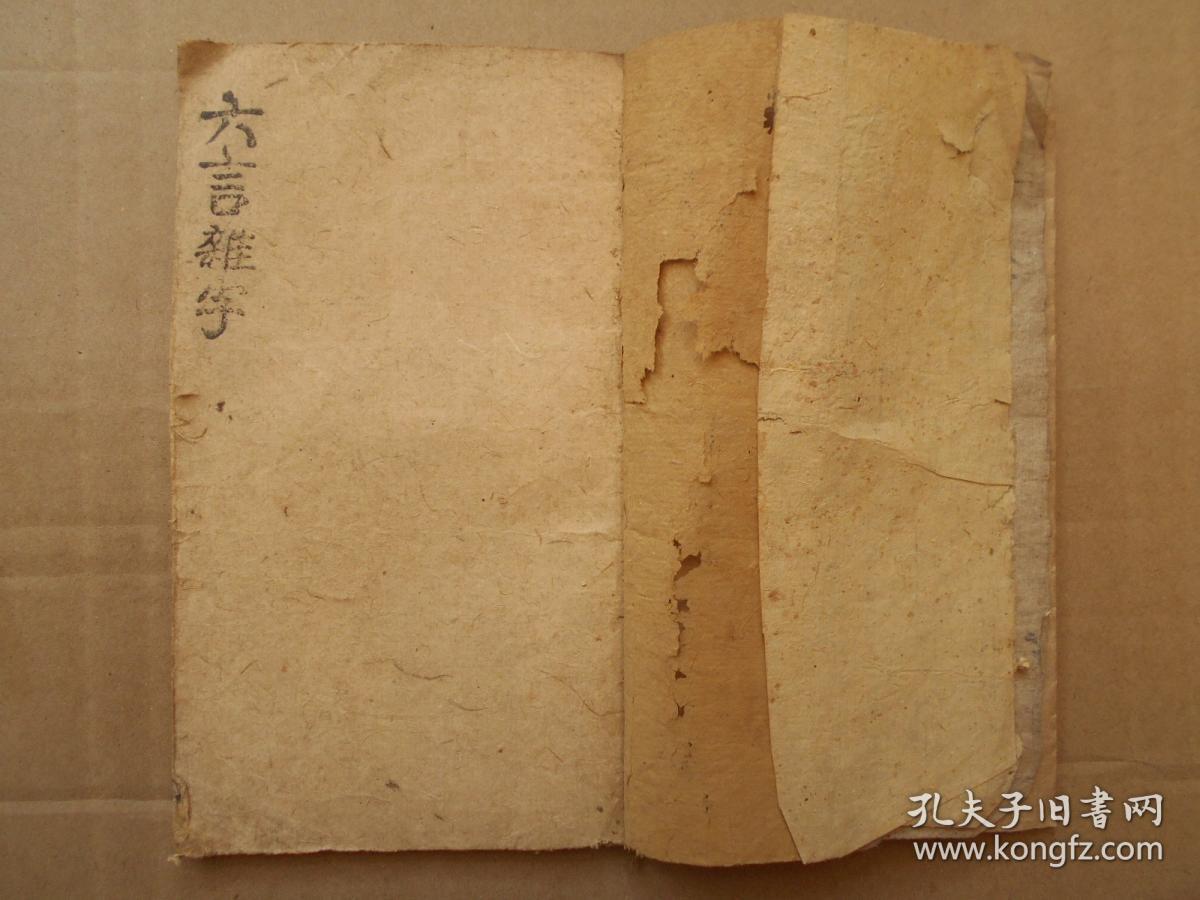 六言雜字
孔夫子旧書网
www.kongfz.com